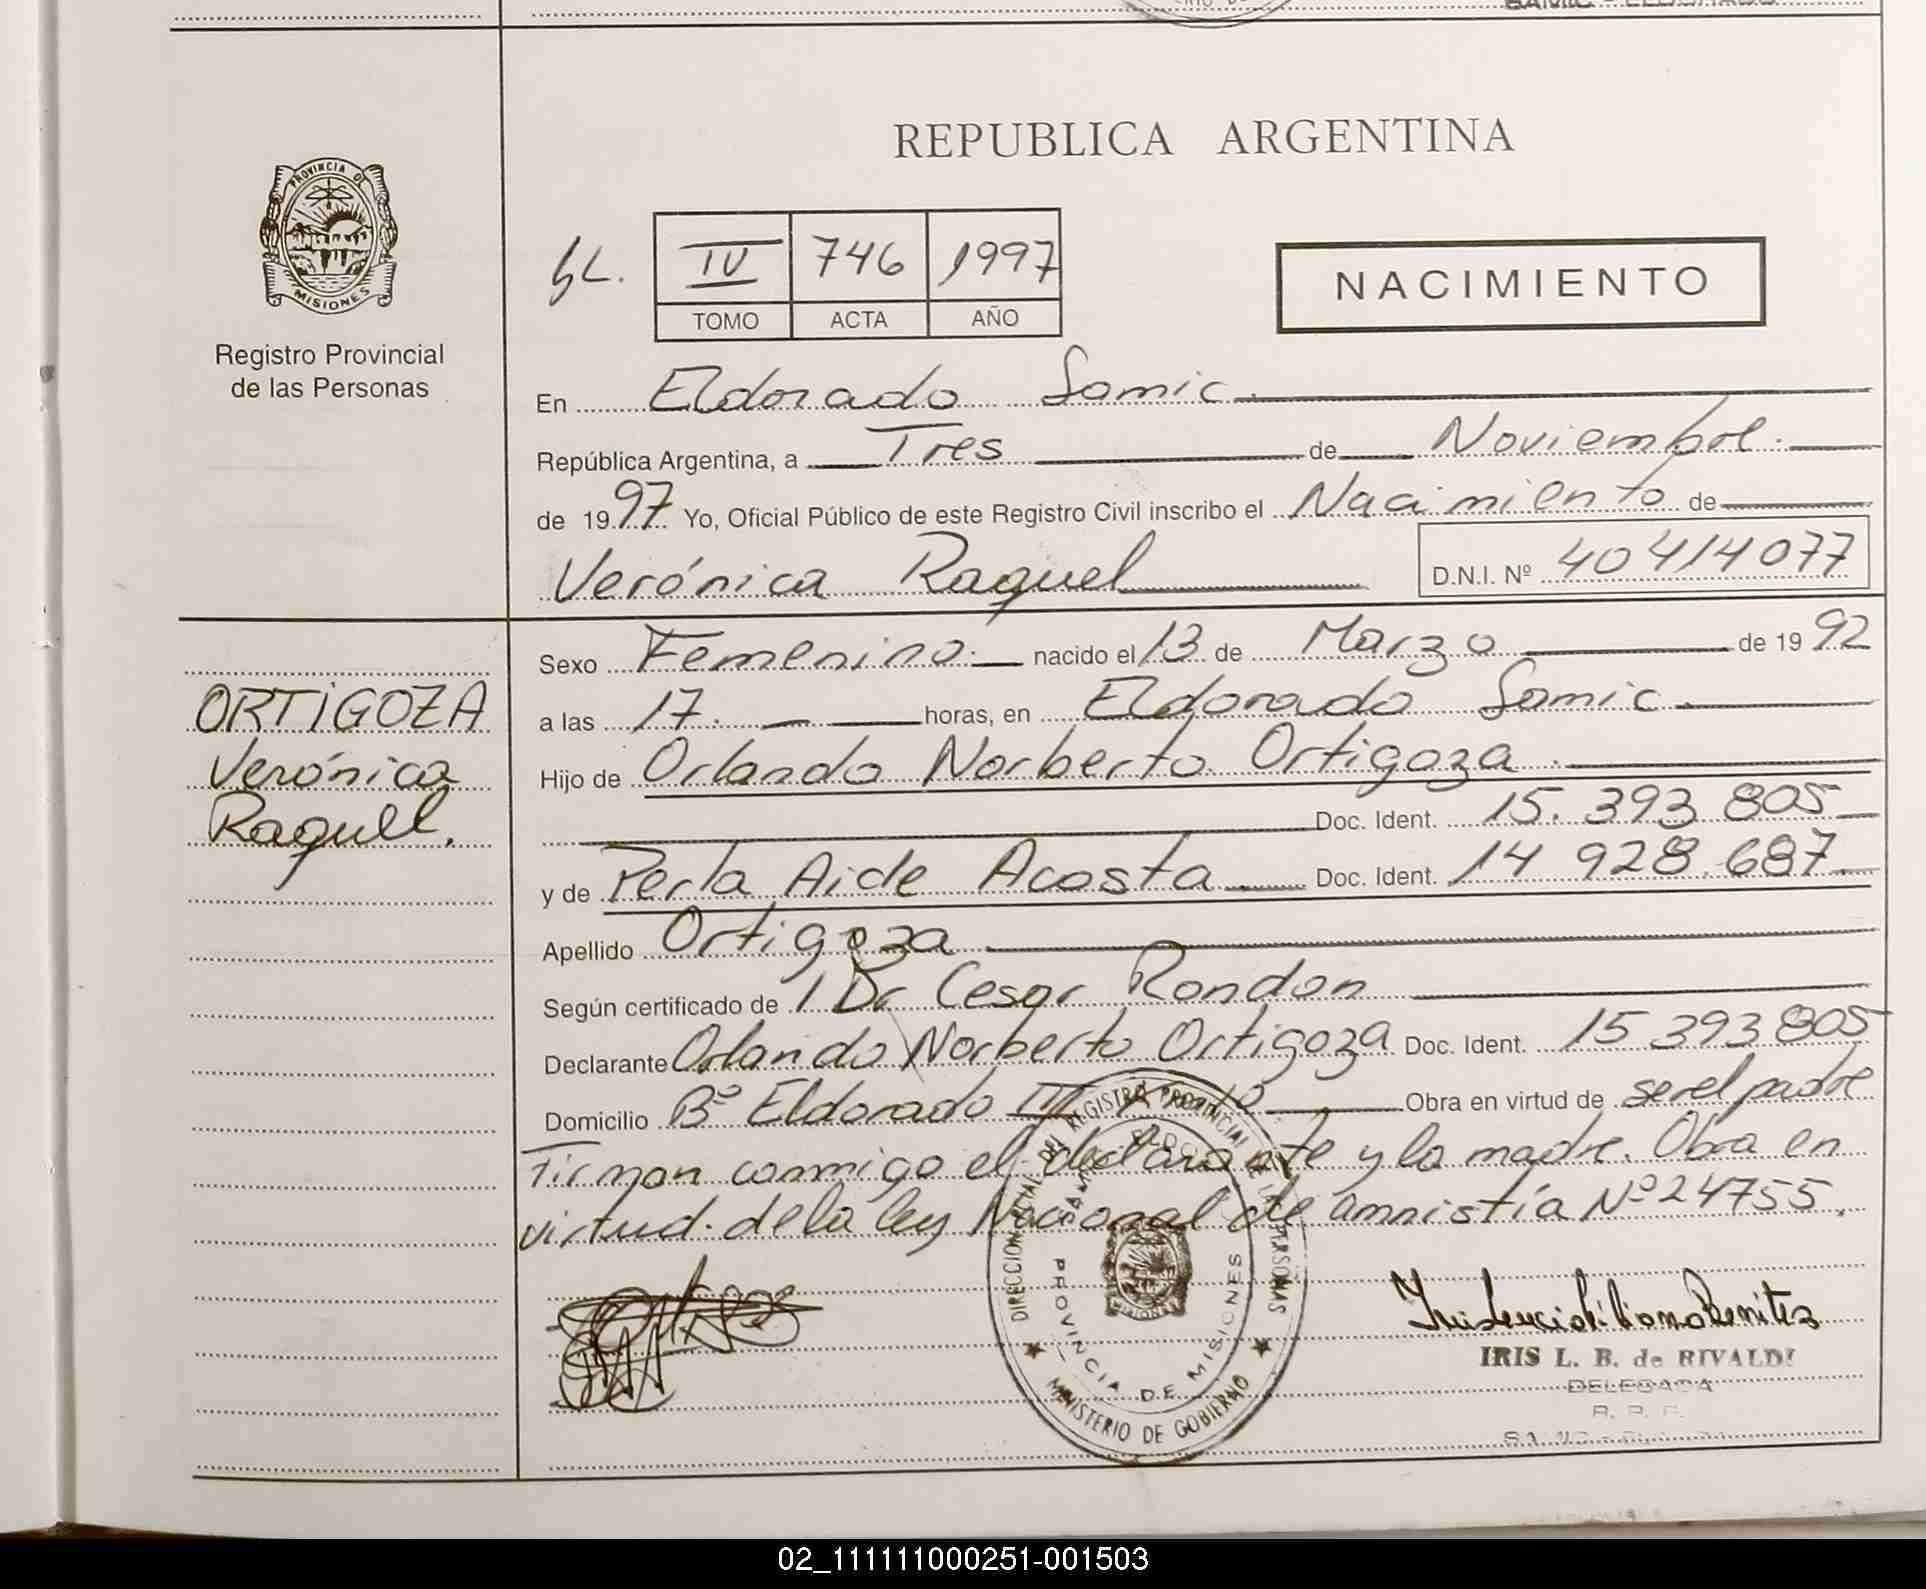 REPUBLICA ARGENTINA
PROVINCIA DE
MISIONES
Registro Provincial
de las Personas
IV 746 1997
TOMO ACTA AÑO
NACIMIENTO
En Eldorado Samic.
República Argentina, a Tres de Noviembre.
de 1997 Yo, Oficial Público de este Registro Civil inscribo el Nacimiento de
Verónica Raquel D.N.I. Nº 40414077
Sexo Femenino. nacido el 13 de Marzo de 1992
a las 17. horas, en Eldorado Samic.
Hijo de Orlando Norberto Ortigoza.
Doc. Ident. 15.393 805
y de Perla Aide Acosta Doc. Ident. 14 928.687
Apellido Ortigoza
Según certificado de 1 Dr Cesar Rondon
Declarante Orlando Norberto Ortigoza Doc. Ident. 15 393 805
Domicilio Bº Eldorado Obra en virtud de ser el padre
Firman conmigo el declarante y la madre. Obra en
virtud de la ley Nacional de amnistía Nº 24755.
ORTIGOZA
Verónica
Raquel.
DIRECCION GRAL. DEL REGISTRO PROVINCIAL DE LAS PERSONAS
PROVINCIA DE MISIONES
MINISTERIO DE GOBIERNO
IRIS L. B. de RIVALDI
DELEGADA
R. P. P.
02_111111000251-001503